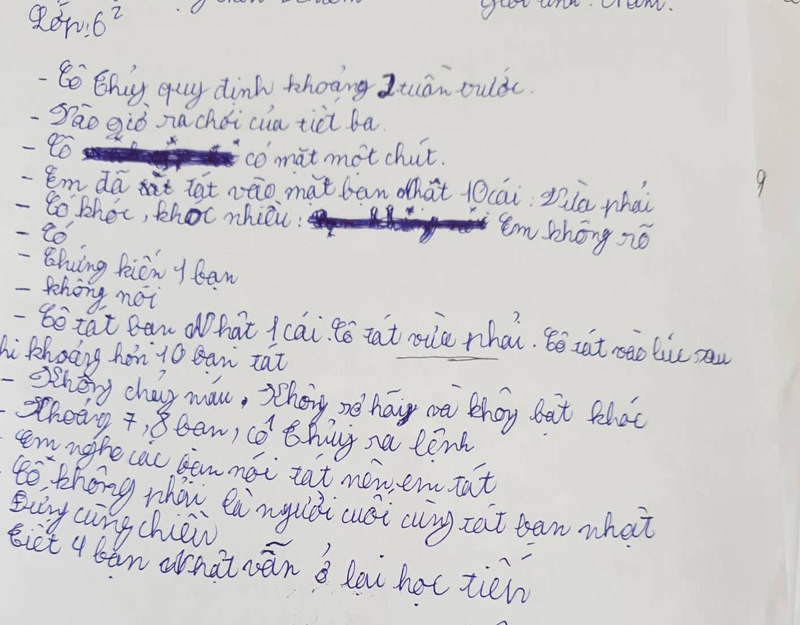 Lớp: 6²
- Cô Thủy quy định khoảng 2 tuần trước.
- Vào giờ ra chơi của tiết ba.
- Cô có mặt một chút.
- Em đã tát vào mặt bạn Nhât 10 cái: Vừa phải
- Có khóc, khóc nhiều: Em không rõ
- Có
- Chứng kiến 1 bạn
- không nói
- Cô tát bạn Nhât 1 cái. Cô tát vừa phải. Cô tát vào lúc sau
khi khoảng hơn 10 bạn tát
- Không chảy máu, Không rõ hãy và không bật khóc
- Khoảng 7, 8 bạn, cô Thủy ra lệnh
Em nghe các bạn nói tát nên em tát
Cô không phải là người cuối cùng tát bạn nhật
Đứng cùng chiều
Tiết 4 bạn Nhật vẫn ở lại học tiếp
9